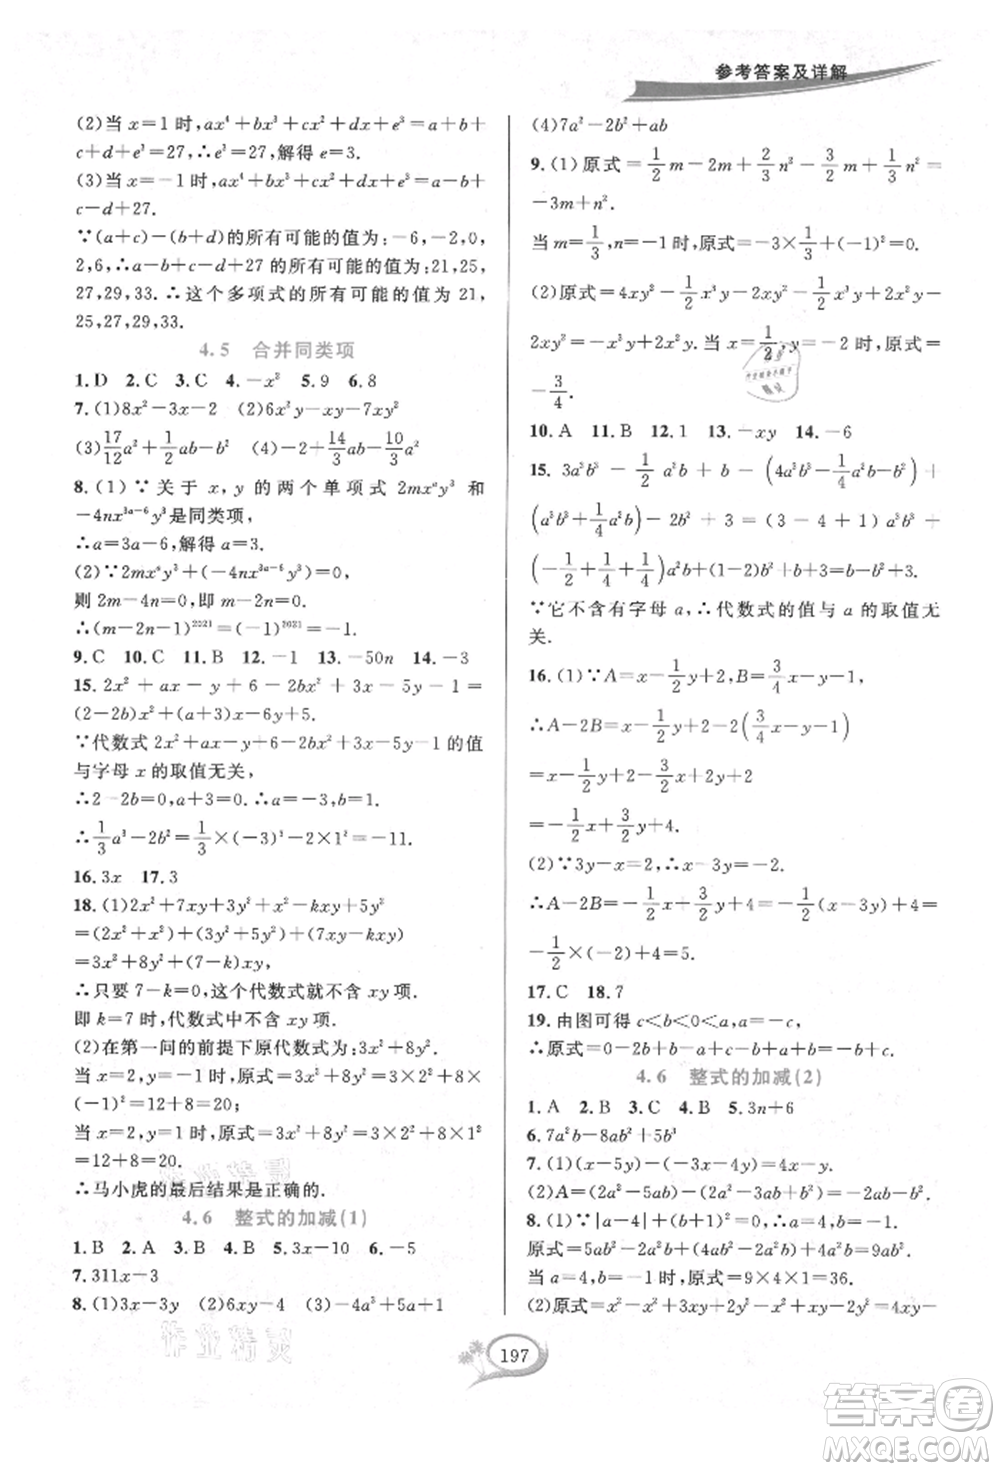 参考答案及详解
(2)当 x=1 时,ax⁴+bx³+cx²+dx+e³=a+b+
c+d+e³=27,∴e³=27,解得 e=3.
(3)当 x=-1 时,ax⁴+bx³+cx²+dx+e³=a-b+
c-d+27.
∵(a+c)-(b+d)的所有可能的值为:-6,-2,0,
2,6,∴a-b+c-d+27 的所有可能的值为:21,25,
27,29,33.∴这个多项式的所有可能的值为 21,
25,27,29,33.
4.5 合并同类项
1.D 2.C 3.C 4.-x² 5.9 6.8
7.(1)8x²-3x-2 (2)6x²y-xy-7xy²
(3)17/12a²+1/2ab-b² (4)-2+14/3ab-10/3a²
8.(1)∵关于 x,y 的两个单项式 2mxᵃy³ 和
-4nx³ᵃ⁻⁶y³是同类项,
∴a=3a-6,解得 a=3.
(2)∵2mxᵃy³+(-4nx³ᵃ⁻⁶y³)=0,
则 2m-4n=0,即 m-2n=0,
∴(m-2n-1)²⁰²¹=(-1)²⁰²¹=-1.
9.C 10.C 11.B 12.-1 13.-50n 14.-3
15.2x²+ax-y+6-2bx²+3x-5y-1=
(2-2b)x²+(a+3)x-6y+5.
∵代数式 2x²+ax-y+6-2bx²+3x-5y-1 的值
与字母 x 的取值无关,
∴2-2b=0,a+3=0.∴a=-3,b=1.
∴1/3a³-2b²=1/3×(-3)³-2×1²=-11.
16.3x 17.3
18.(1)2x²+7xy+3y²+x²-kxy+5y²
=(2x²+x²)+(3y²+5y²)+(7xy-kxy)
=3x²+8y²+(7-k)xy,
∴只要 7-k=0,这个代数式就不含 xy 项.
即 k=7 时,代数式中不含 xy 项.
(2)在第一问的前提下原代数式为:3x²+8y².
当 x=2,y=-1 时,原式=3x²+8y²=3×2²+8×
(-1)²=12+8=20;
当 x=2,y=1 时,原式=3x²+8y²=3×2²+8×1²
=12+8=20.
∴马小虎的最后结果是正确的.
4.6 整式的加减(1)
1.B 2.A 3.B 4.C 5.3x-10 6.-5
7.311x-3
8.(1)3x-3y (2)6xy-4 (3)-4a³+4a+1
(4)7a²-2b²+ab
9.(1)原式=1/2m-2m+2/3n²-3/2m+1/3n²=
-3m+n².
当 m=1/3,n=-1 时,原式=-3×1/3+(-1)²=0.
(2)原式=4xy²-1/2x³y-2xy²+1/4x³y=
2xy²-1/4x³y,当 x=1/2,y=-2 时,原式=
-3/4.
10.A 11.B 12.1 13.-xy 14.-6
15.3a³b³-1/2a²b+b-(4a³b³-1/4a²b-b²)+
(a³b³+1/4a²b)-2b²+3=(3-4+1)a³b³+
(-1/2+1/4+1/4)a²b+(1-2)b²+b+3=b-b²+3.
∵它不含有字母 a,∴代数式的值与 a 的取值无
关.
16.(1)∵A=x-1/2y+2,B=3/4x-y-1,
∴A-2B=x-1/2y+2-2(3/4x-y-1)
=x-1/2y+2-3/2x+2y+2
=-1/2x+3/2y+4.
(2)∵3y-x=2,∴x-3y=-2.
∴A-2B=-1/2x+3/2y+4=-1/2(x-3y)+4=
-1/2×(-2)+4=5.
17.C 18.7
19.由图可得 c<b<0<a,a=-c,
∴原式=0-2b+b-a+c-b+a-c=-2b.
4.6 整式的加减(2)
1.A 2.B 3.C 4.B 5.3n+6
6.7a²b-8ab²+5b³
7.(1)(x-5y)-(-3x+4y)=4x-9y.
(2)A=(2a²-b²)-(-3a²+2b²)=5a²-3b².
8.(1)∵|a-4|+(b+1)²=0,∴a=4,b=-1,
原式=5ab²-2a²b+(4ab²-2a²b)=9ab²-4a²b
当 a=4,b=-1 时,原式=9ab²-4a²b=36.
(2)原式=x²-x²+2xy-3y²-2x²+2xy-
197
作业精灵
答案圈
MXQE.COM